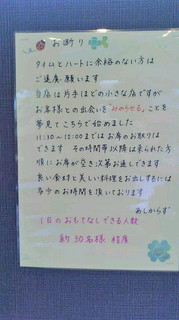 お断り
タイムとハートに余裕のない方は
ご遠慮願います
当店は片手ほどの小さな店ですが
お客様との出会いを"みのらせる"ことを
夢見てこちらで始めました
11:30~12:00まではお席のお取りは
できます その時間帯以降は来られた方
順にお席が空き次第お通しできます
良い食材と美しい料理をお出しするには
多少のお時間を頂いております
あしからず
1日のおもてなしできる人数
約30名様 程度